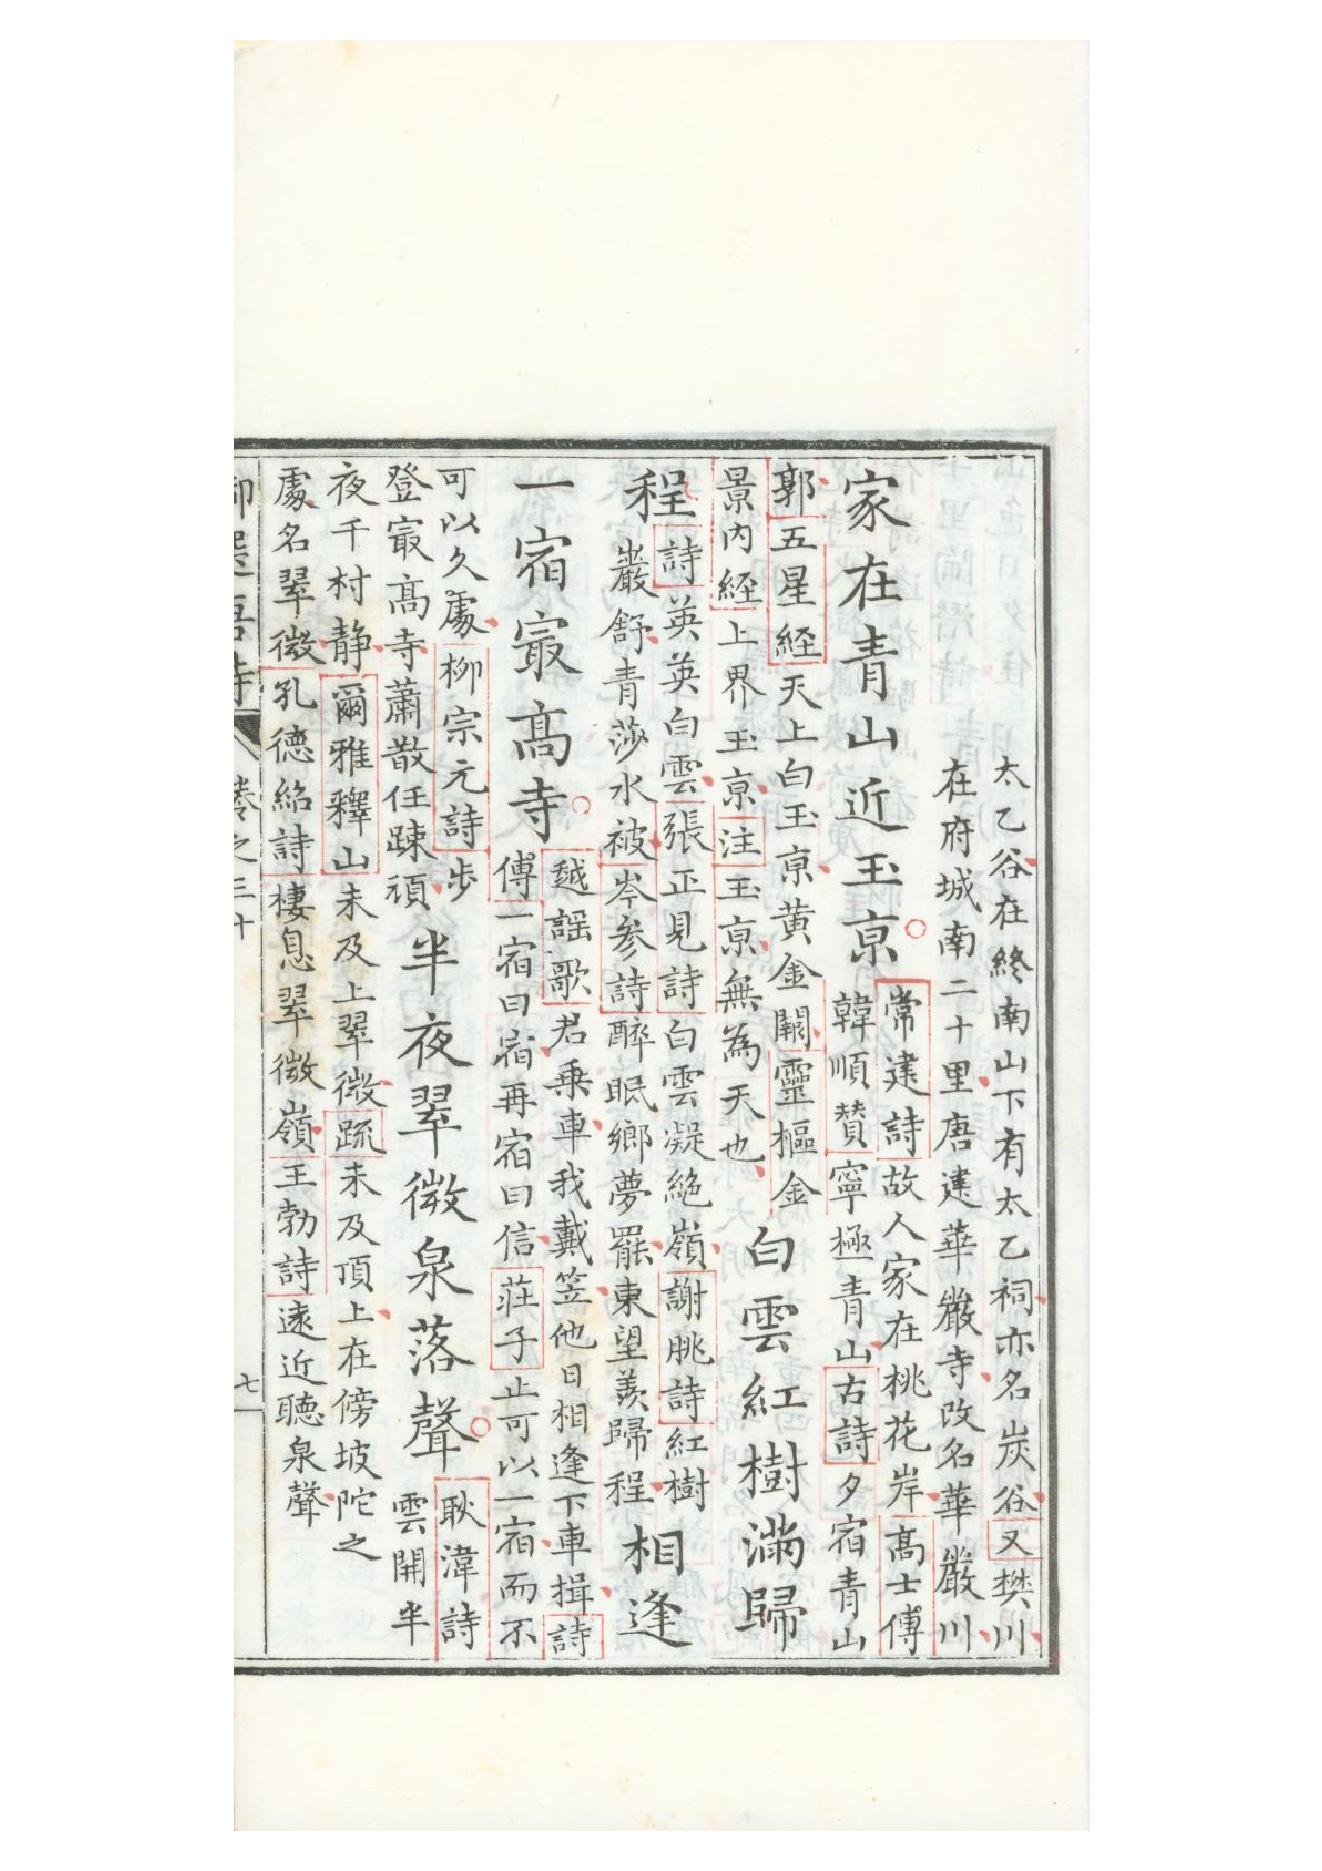 太乙谷在終南山下有太乙祠亦名炭谷又樊川
在府城南二十里唐建華嚴寺改名華嚴川
家在青山近玉京
常建詩故人家在桃花岸高士傳
韓順贊寧極青山古詩夕宿青山
郭五星経天上白玉京黃金闕靈樞金
景内經上界玉京注玉京無為天也
白雲紅樹滿歸
程
詩英英白雲張正見詩白雲凝絶嶺謝朓詩紅樹
巖舒青莎水被岑參詩醉眠鄉夢罷東望羨歸程
相逢
一宿㝡高寺
越謡歌君乗車我戴笠他日相逢下車揖詩
傳一宿曰宿再宿曰信莊子止可以一宿而不
可以久處柳宗元詩步
登㝡高寺蕭散任踈頑
半夜翠微泉落聲
耿湋詩
雲開半
夜千村静爾雅釋山未及上翠微疏未及頂上在傍坡陀之
處名翠微孔德紹詩棲息翠微嶺王勃詩遠近聽泉聲
卷之三十
七